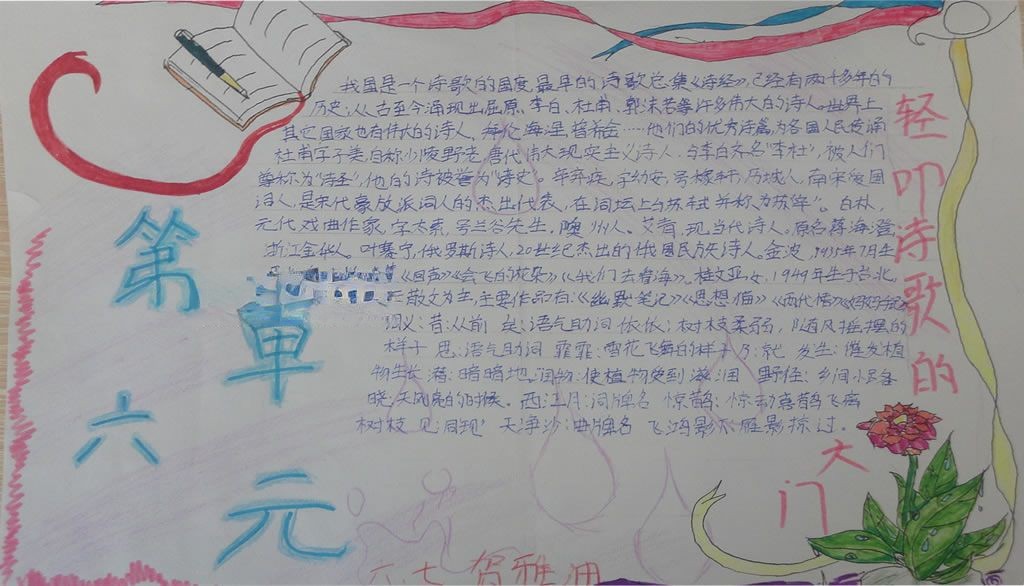 我国是一个诗歌的国度,最早的诗歌总集《诗经》,已经有两千多年的
历史,从古至今涌现出屈原、李白、杜甫、郭沫若等许多伟大的诗人。世界上
其它国家也有伟大的诗人,海涅、普希金……他们的优秀诗篇,为各国人民传诵
杜甫字子美,自称少陵野老,唐代伟大现实主义诗人,与李白齐名"李杜",被人们
尊称为"诗圣",他的诗被誉为"诗史"。辛弃疾,字幼安,号稼轩,历城人,南宋爱国
词人,是宋代豪放派词人的杰出代表,在词坛上与苏轼并称为苏辛"。白朴,
元代戏曲作家,字太素,号兰谷先生,隩州人。艾青,现、当代诗人。原名蒋海澄,
浙江金华人。叶赛宁,俄罗斯诗人,20世纪杰出的俄国民族诗人。金波,1935年7月生
《回声》《会飞的花朵》《我们去看海》。桂文亚,女,1949年生于台北,
散文为主,主要作品有:《幽默笔记》《思想猫》《两代情》
词义:昔:从前 矣:语气助词 依依:树枝柔弱,随风摇摆的
样子 思:语气助词 霏霏:雪花飞舞的样子 乃:就 发生:催发植
物生长 潜:暗暗地。润物:使植物受到滋润 野径:乡间小路
晓:天刚亮的时候。西江月:词牌名 惊鹊:惊动喜鹊飞离
树枝 见:同现' 天净沙:曲牌名 飞鸿影下:雁影掠过。
第六
单元
轻叩诗歌的
大门
六.七 贺雅